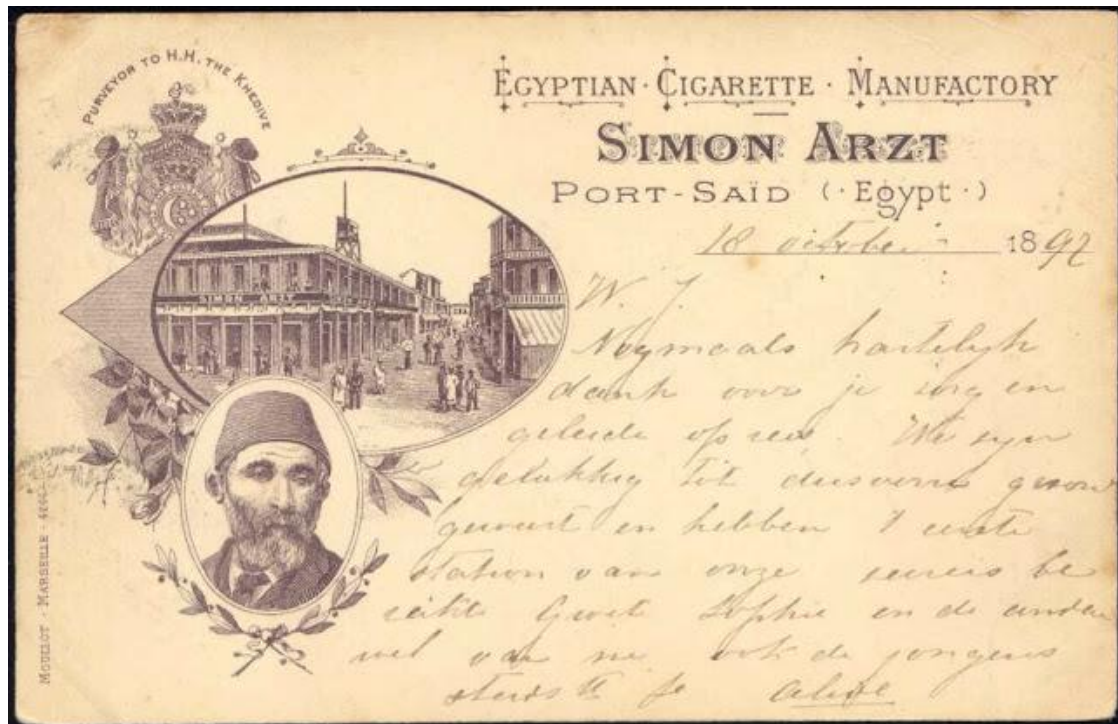 PURVEYOR TO H.H. THE KHEDIVE
EGYPTIAN · CIGARETTE · MANUFACTORY
SIMON ARZT
PORT-SAÏD (· Egypt ·)
18 october 1897
SIMON ARZT
W. J.
Nogmaals hartelijk
dank voor je zorg en
geleide op reis. We zijn
gelukkig tot dusverre gezond
geweest en hebben 't eerste
station van onze be
reikt Groet Sophie en de andere
wel van me ook de jongens
steeds je
MOULLOT - MARSEILLE